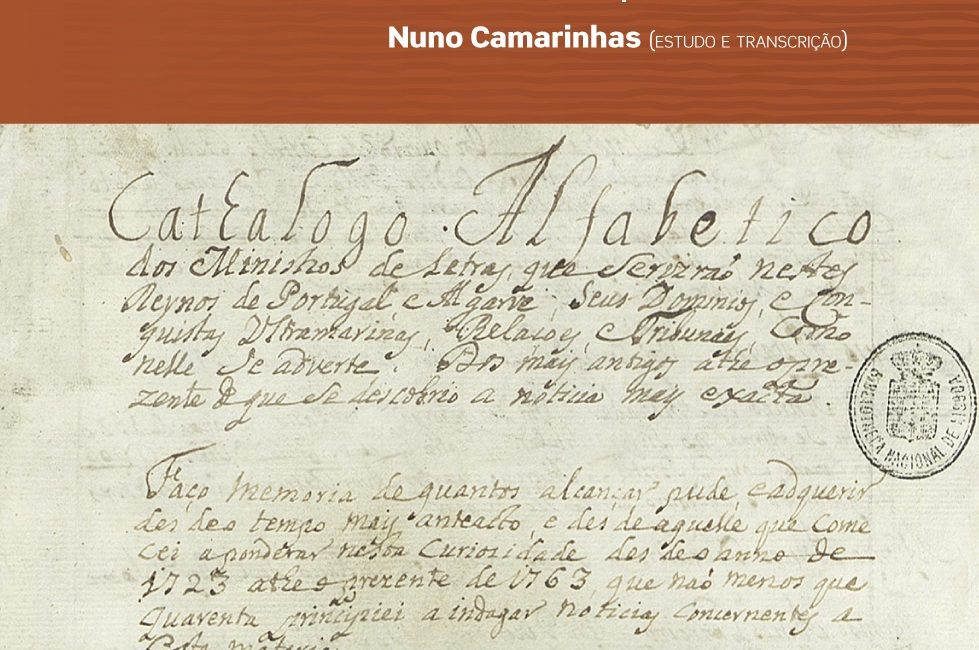 Nuno Camarinhas (ESTUDO E TRANSCRIÇÃO)
Cathalogo Alfabetico
dos Ministros de Letras, que Servirão nestes
Reynos de Portugal, e Algarve, Seus Dominios, e Con-
quistas Ultramarinas, Relações, e Tribunaes, Como
nelle Se adverte. Dos mays antigos athe o pre-
zente de que Se descobrio a noticia may exacta.
BIBLIOTHECA NACIONAL DE LISBOA
Faço memoria de quantos alcançar pude, e adquerir
des de o tempo mays anteacto, e des de aquelle que Come
cei a ponderar nesta Curiosidade des de o anno de
1723 athe o prezente de 1763, que naõ menos que
quarenta principiei a indagar noticias Concernentes a
Esta materia